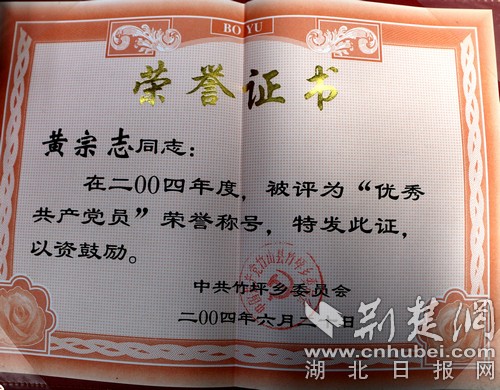 BO YU
荣誉证书
黄宗志同志：
在二00四年度，被评为“优秀
共产党员”荣誉称号，特发此证，
以资鼓励。
中共竹坪乡委员会
二00四年六月二
日
荆楚网
www.cnhubei.com
湖北日报网